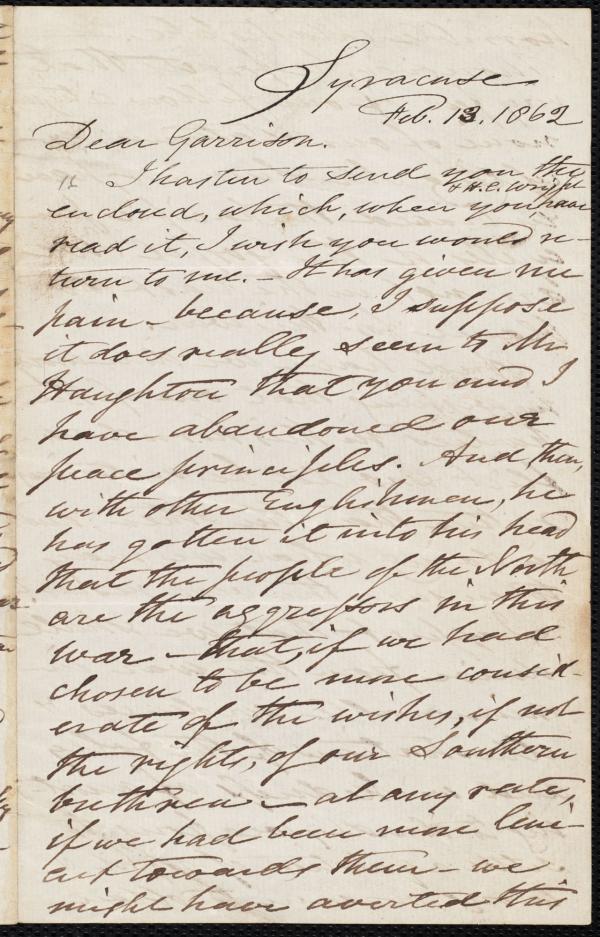 Syracuse
Feb. 13. 1862
Dear Garrison.
I hasten to send you the
& H.C. Wright
enclosed, which, when you have
read it, I wish you would re-
turn to me. - It has given me
pain - because, I suppose
it does really seem to Mr
Haughton that you and I
have abandoned our
peace principles. And then,
with other Englishmen, he
has gotten it into his head
that the people of the North
are the aggressors in this
war - that, if we had
chosen to be more consid-
erate of the wishes, if not
the rights, of our Southern
brethren - at any rate,
if we had been more leni-
ent towards them - we
might have averted this